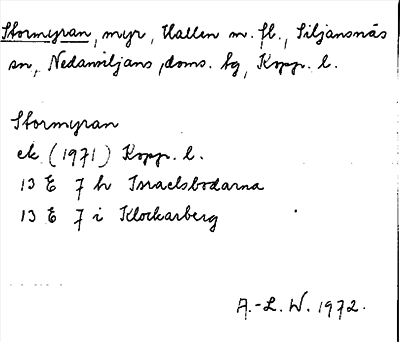 Stormyran, myr, Hallen m. fl., Siljansnäs
sn, Nedansiljans doms. tg, Kopp. l.
Stormyran
ek. (1971) Kopp. l.
13 E 7 h Israelsbodarna
13 E 7 i Klockarberg
A.-L. W. 1972.